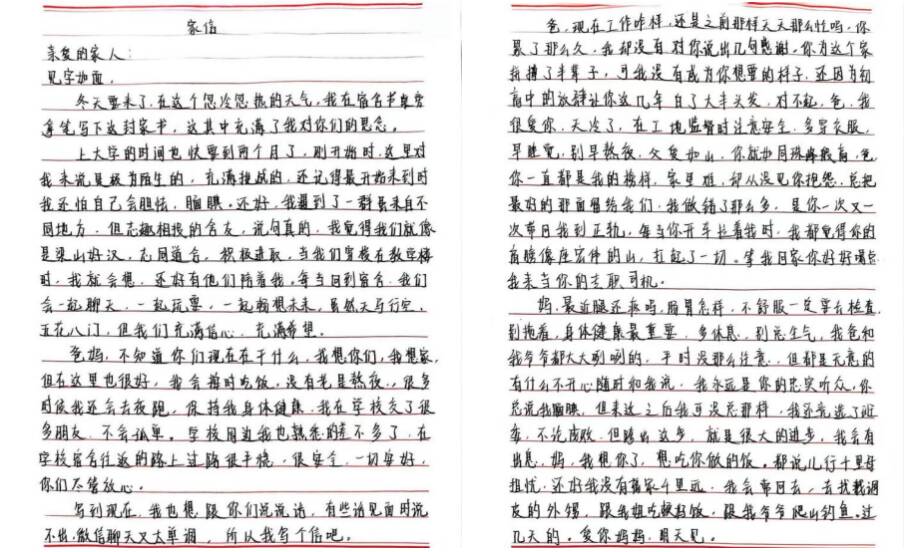 家信
亲爱的家人：
见字如面，
冬天要来了，在这个忽冷忽热的天气，我在宿舍书桌旁
拿笔写下这封家书，这其中充满了我对你们的思念。
上大学的时间也快要到两个月了，刚开始时，这里对
我来说是极为陌生的，充满挑战的，还记得最开始来到时
我还怕自己会胆怯，腼腆。还好，我遇到了一群虽来自不
同地方，但志趣相投的舍友，说句真的，我觉得我们就像
是梁山好汉，志同道合，积极进取，当我们穿梭在教学楼
时，我就会想，还好有他们陪着我。每当回到宿舍，我们
会一起聊天，一起玩耍，一起畅想未来，虽然天马行空，
五花八门，但我们充满信心，充满希望。
爸妈，不知道你们现在在干什么，我想你们，我想家，
但在这里也很好，我会按时吃饭，没有老是熬夜，很多
时候我还会去夜跑，保持我身体健康，我在学校交了很
多朋友，不会孤单。学校周边我也熟悉的差不多了，在
学校宿舍往返的路上过路很平稳，很安全，一切安好，
你们尽管放心。
写到现在，我也想跟你们说说话，有些话见面时说
不出，微信聊天又太单调，所以我写个信吧。
爸，现在工作咋样，还是之前那样天天那么忙吗，你
累了那么久，我却没有对你说出几句感谢，你为这个家
拼搏了半辈子，可我没有成为你想要的样子，还因为初
高中的放肆让你这几年白了大半头发，对不起，爸，我
很爱你，天冷了，在工地监督时注意安全，多穿衣服，
早睡觉，别早熬夜，父爱如山，你就如同珠峰般高，爸
你一直都是我的榜样，家里难，却从没见你抱怨，总把
最好的那面留给我们，我做错了那么多，是你一次又一
次带回我到正轨，每当你开车拉着我时，我都觉得你的
肩膀像座宏伟的山，扛起了一切。等我回家你好好喝点
我来当你的专职司机。
妈，最近腿还疼吗，肠胃怎样，不舒服一定要去检查，
别拖着，身体健康最重要，多休息，别总生气，我爸和
我爷爷都大大咧咧的，平时没那么注意，但都是无意的
有什么不开心随时和我说，我永远是你的忠实听众，你
总说我腼腆，但来这之后我可没总那样，我还竞选了班
委，不论成败，但踏出这步，就是很大的进步，我会有
出息，妈，我想你了，想吃你做的饭。都说儿行千里母
担忧，还好我没有离家千里远，我会常回去，去找我朋
友的外甥，跟我姐吃顿好饭，跟我爷爷爬山钓鱼，过
几天的。爱你妈妈，明天见。